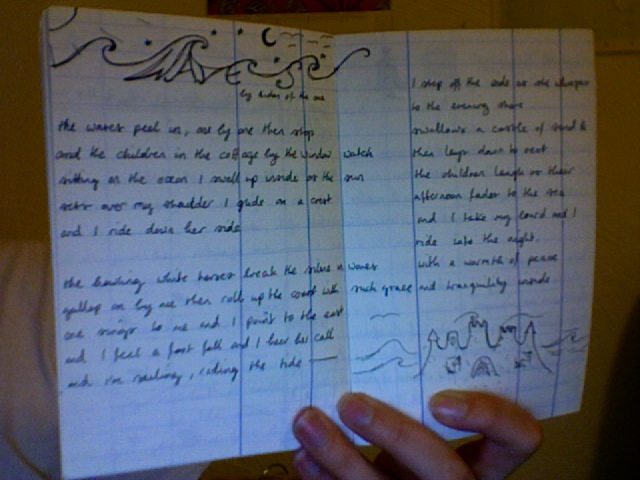 WAVES
the waves peel in, one by one then stop
and the children in the cottage by the window watch
sitting on the ocean I swell up inside as the sun
sets over my shoulder I glide on a crest
and I ride down her side
the howling white horses break the silence in waves
gallop on by me then roll up the coast with such grace
one sings to me and I point to the east
and I feel a foot fall and I hear her call
and i'm sailing, riding the tide
I step off the side as she whispers
to the evening shore
swallows a castle of sand &
then lays down to rest
the children laugh as their
afternoon fades to the sea
and I take my board and I
ride into the night.
with a warmth of peace
and tranquility inside